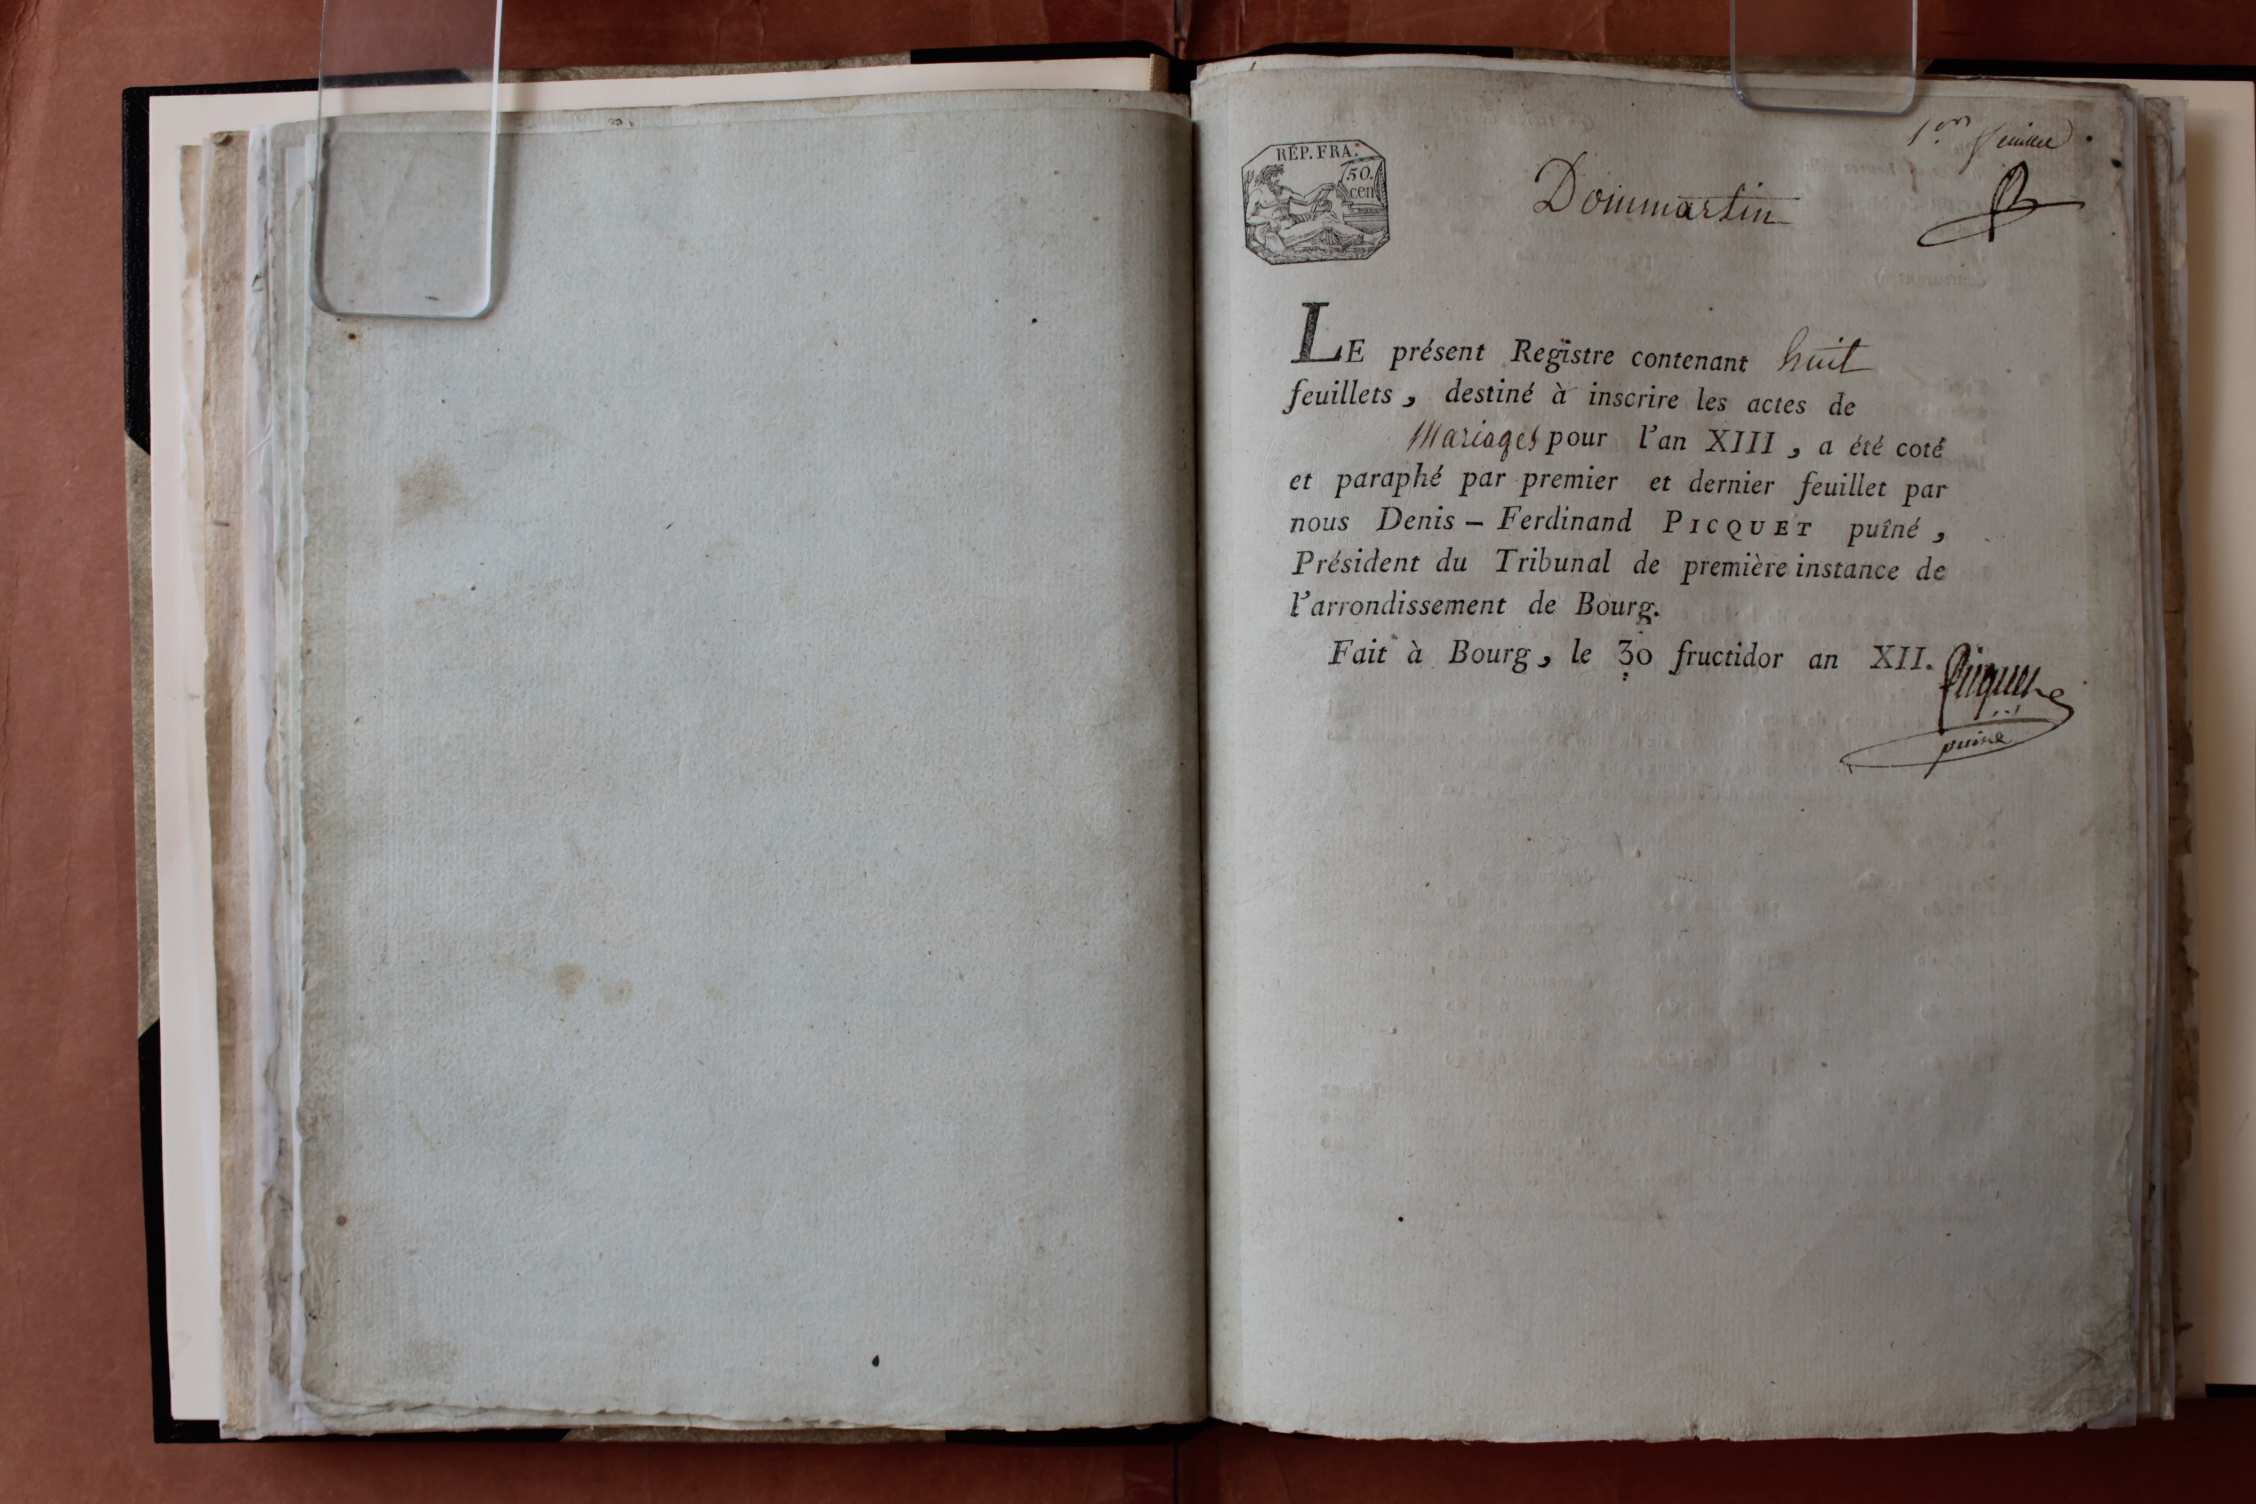 1er feuillet
RÉP. FRA.
50.
cen
Dommartin
LE présent Registre contenant huit
feuillets, destiné à inscrire les actes de
Mariages pour l'an XIII, a été coté
et paraphé par premier et dernier feuillet par
nous Denis – Ferdinand PICQUET puîné,
Président du Tribunal de première instance de
l'arrondissement de Bourg.
Fait à Bourg, le 30 fructidor an XII.
Picquet
puiné